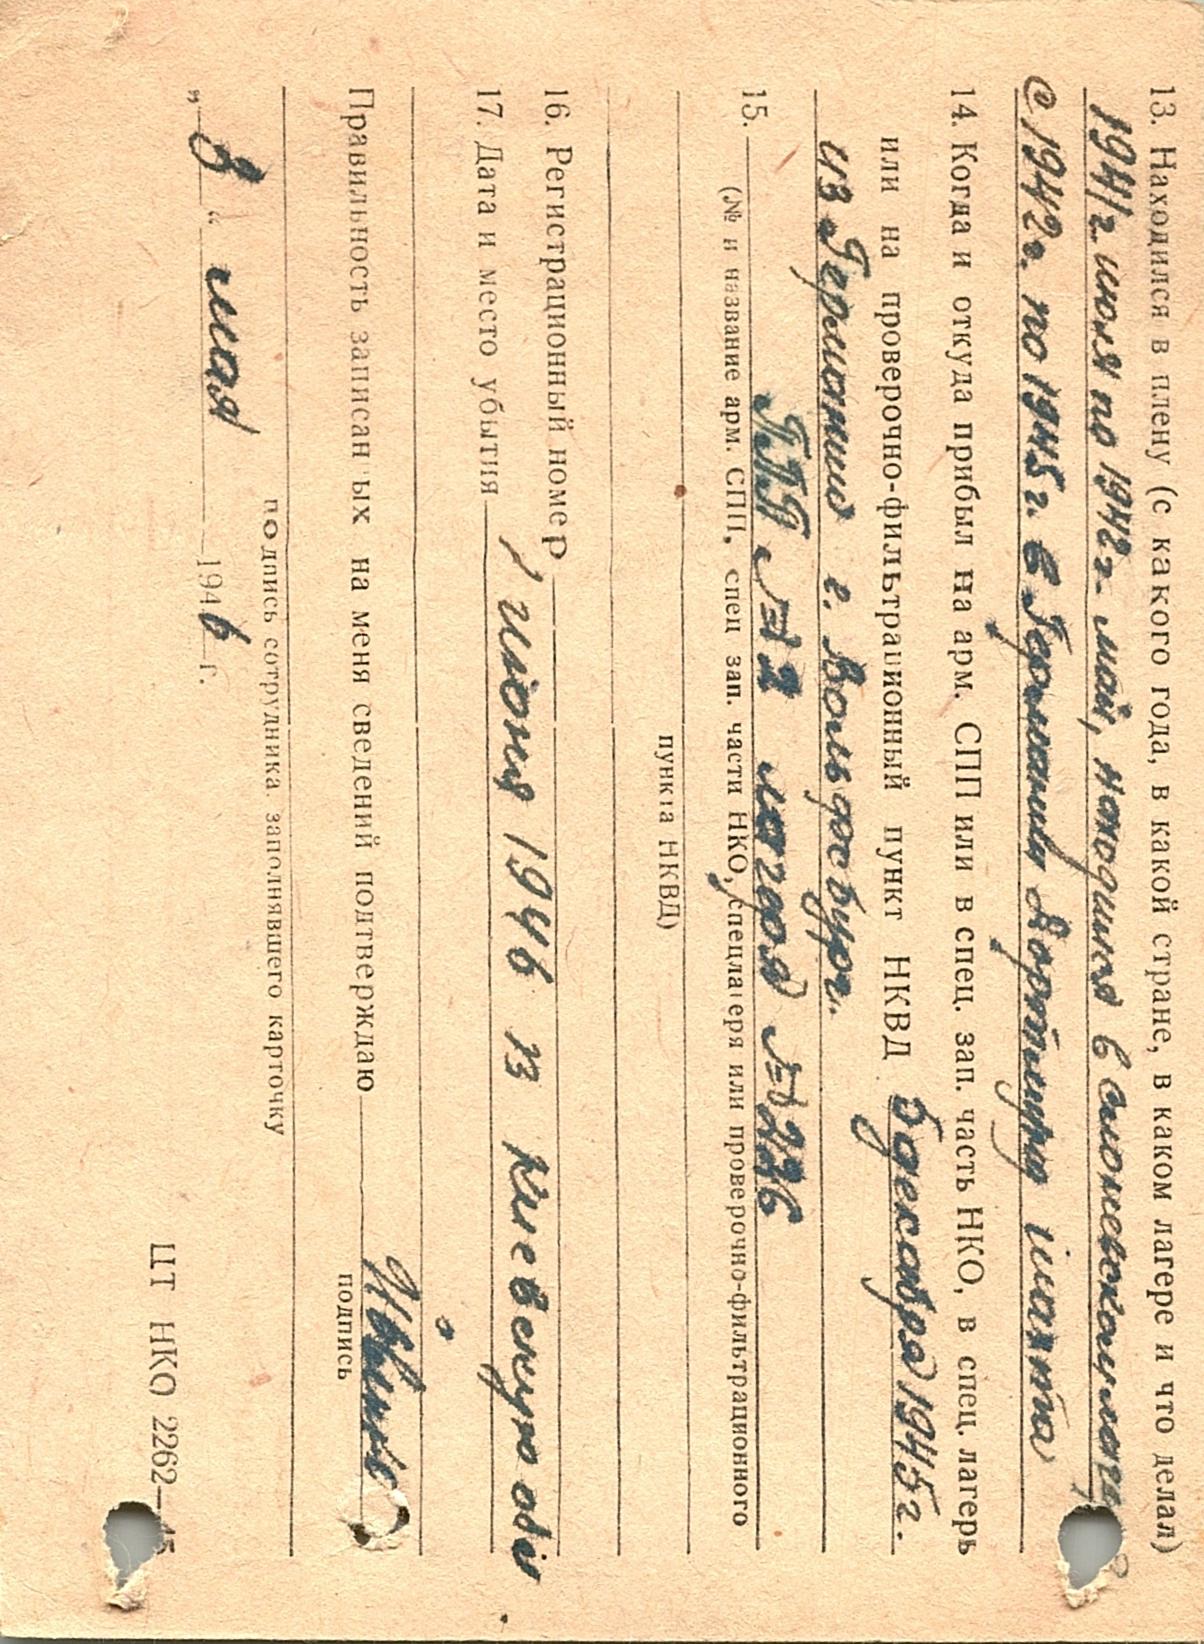 13. Находился в плену (с какого года, в какой стране, в каком лагере и что делал)
1941 г. июля по 1942 г. май, находился в
с 1942 г. по 1945 г. в Германии шахта
14. Когда и откуда прибыл на арм. СПП или в спец. зап. часть НКО, в спец. лагерь
или на проверочно-фильтрационный пункт НКВД 6 декабря 1945 г.
из Германии г. Вольфсбург.
15. ПФП № 2 лагеря № 226
(№ и название арм. СПП, спец зап. части НКО, спецлагеря или проверочно-фильтрационного
пункта НКВД)
16. Регистрационный номер
17. Дата и место убытия 1 июня 1946 в Киевскую обл
Правильность записанных на меня сведений подтверждаю
подпись
подпись сотрудника заполнявшего карточку
„ 8 “ мая 1946 г.
ЦТ НКО 2262—45